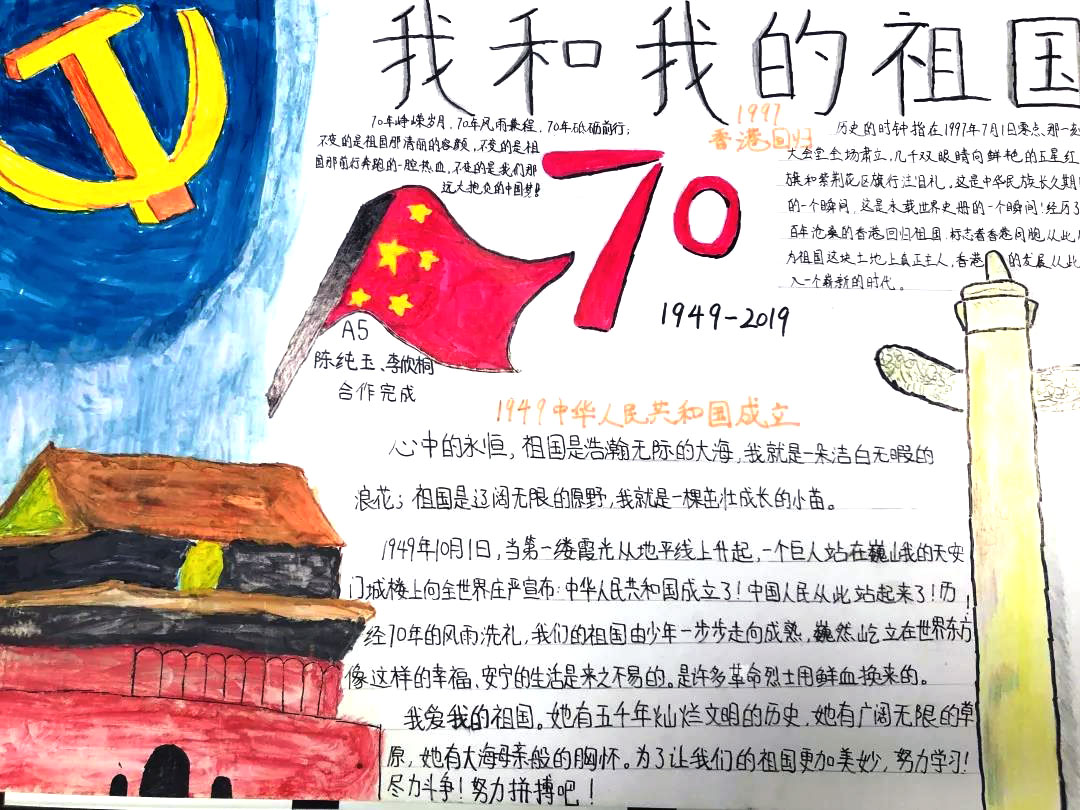 我和我的祖国
70年峥嵘岁月，70年风雨兼程，70年砥砺前行；
不变的是祖国那清丽的容颜，不变的是祖
国那前行奔跑的一腔热血，不变的是我们那
远大抱负的中国梦！
70
1949-2019
1997
香港回归
历史的时钟指在1997年7月1日零点，那一刻
大会堂全场肃立，几千双眼睛向鲜艳的五星红
旗和紫荆花区旗行注目礼，这是中华民族长久期
的一个瞬间，这是永载世界史册的一个瞬间！经历了
百年沧桑的香港回归祖国，标志着香港同胞从此
为祖国这块土地上真正主人，香港的发展从此
入一个崭新的时代。
A5
陈纯玉、李欣桐
合作完成
1949中华人民共和国成立
心中的永恒，祖国是浩瀚无际的大海，我就是一朵洁白无暇的
浪花；祖国是辽阔无限的原野，我就是一棵茁壮成长的小苗。
1949年10月1日，当第一缕霞光从地平线上升起，一个巨人站在巍峨的天安
门城楼上向全世界庄严宣布：中华人民共和国成立了！中国人民从此站起来了！历
经70年的风雨洗礼，我们的祖国由少年一步步走向成熟，巍然屹立在世界东方！
像这样的幸福、安宁的生活是来之不易的。是许多革命烈士用鲜血换来的。
我爱我的祖国。她有五千年灿烂文明的历史，她有广阔无限的草
原，她有大海母亲般的胸怀。为了让我们的祖国更加美妙，努力学习！
尽力斗争！努力拼搏吧！